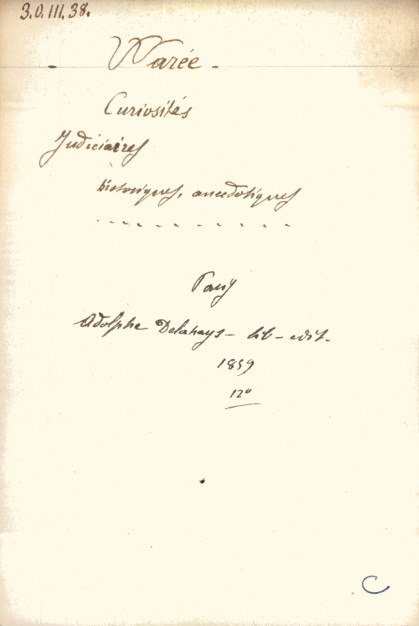 3.O.III.38.
Warée -
Curiosités
Judiciaires
historiques, anecdotiques
Paris
Adolphe Delahays - lib - edit.
1859
12°
C